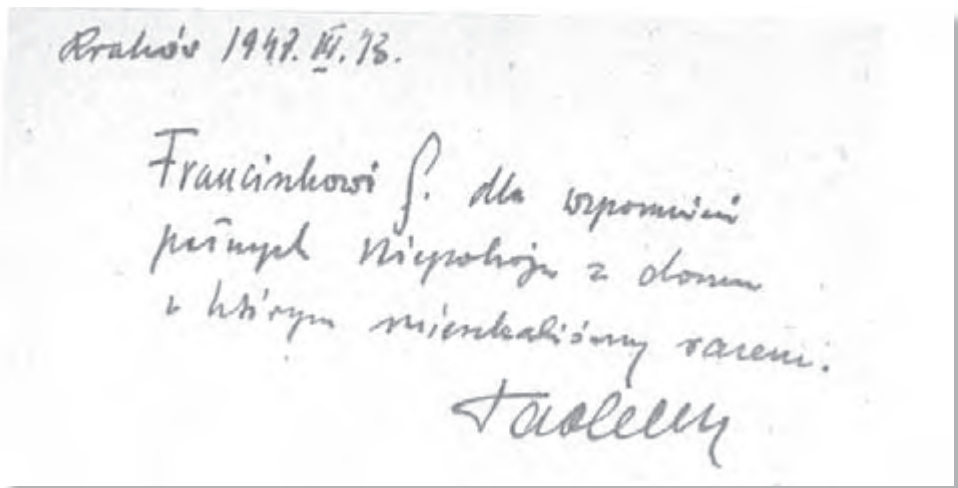 Kraków 1947. III. 13.
Franciszkowi G. dla wspomnień
pełnych niepokoju z domu
w którym mieszkaliśmy razem.